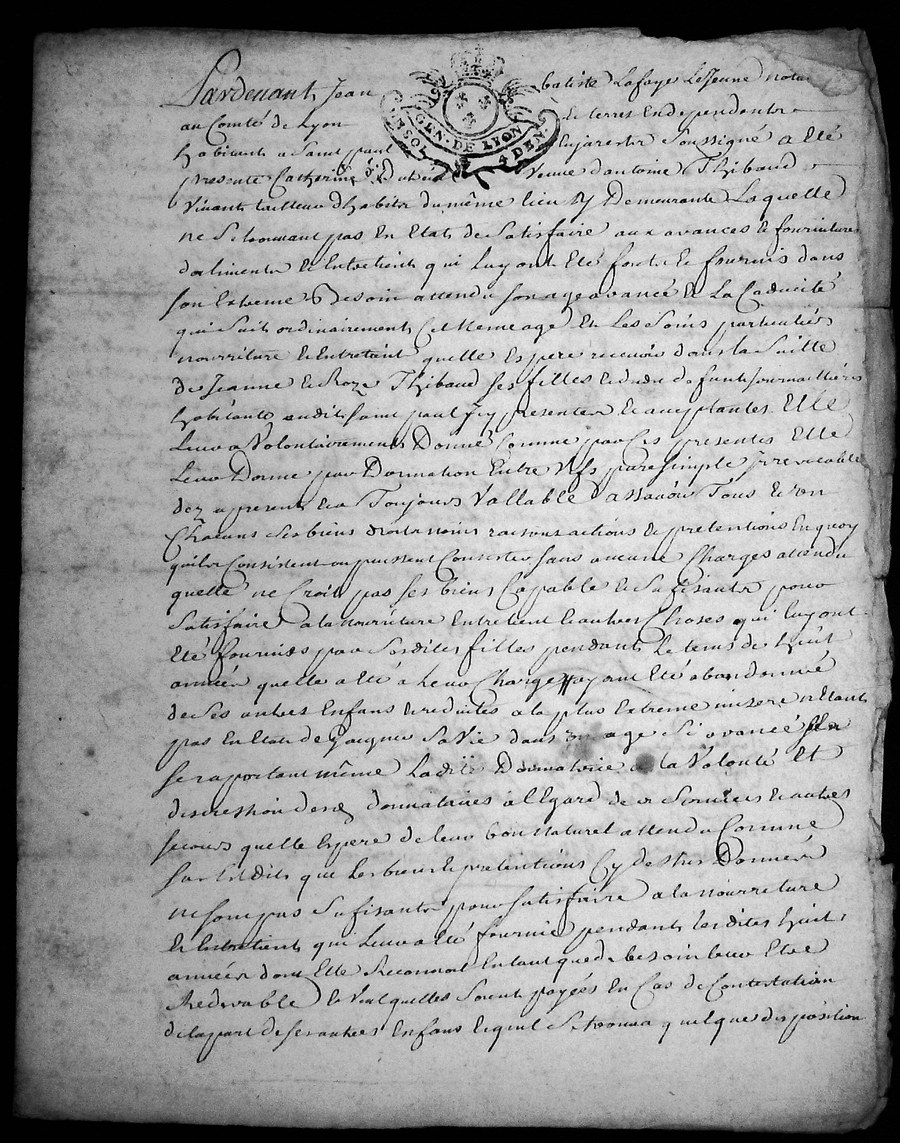 Pardevant Jean baptiste Lafayes LeJeune nota
au Comté de Lyon de terres En dependantes
GEN. DE LYON
UN SOL 4 DEN
habitant a Saint paul Soussigné a Eté
presente Catherine veuve d'antoine Thibaud
vivant tailleur d'habits du même lieu y Demeurante Laquelle
ne Se trouvant pas En Etat de Satisfaire aux avances et fournitures
d'aliments et Entretient qui Luy ont Eté faits et fournis dans
Son Extreme Besoin attendu Son age avancé et La Caducité
qui Suit ordinairement Cet meme age Et Les Soins particuliers
nourriture et Entretient quelle Espere recevoir dans la Suitte
de Jeanne et Roze Thibaud Ses filles et dudit defunt Journallières
habitantes audit Saint paul Jcy presentes et acceptantes Elle
Leur a Volontairement Donné Comme par Ces presentes Elle
Leur Donne par Donnation Entre Vifs pure Simple Jrrevocable
dez a present Et a Toujours Vallable assavoir Tous et un
Chacuns Ses biens droits noms raisons actions et pretentions En quoy
quils Consistent ou puissent Consister Sans aucune Charges attendu
quelle ne Croit pas Ses biens Capable et Sufisants pour
Satisfaire a la nourriture Entretient et autres Choses qui luy ont
Eté fournies par Sesdites filles pendant Le tems de huit
années quelle a Eté a Leur Charge ayant Eté abandonné
de Ses autres Enfans et reduite a la plus Extreme misere n'Etant
pas En Etat de Gaigner Sa Vie dans un age Si avancé
Se raportant même Ladite Donnatrice a la Volonté Et
discression desd donnataires a l'Egard de Services et autres
Secours quelle Espere de leur bon Naturel attendu Comme
Sus Est dit que Les biens et pretentions Cy dessus Donnés
ne Sont pas Sufisants pour Satisfaire a la nourriture
et Entretient qui Leur a Eté fournie pendant Lesdites huit
années dont Elle Reconnoit En tant que de besoin leur Etre
Redevable et Veut quelles Soient payées En Cas de Contestation
de la part de Ses autres Enfans et quil Se trouva quelque disposition